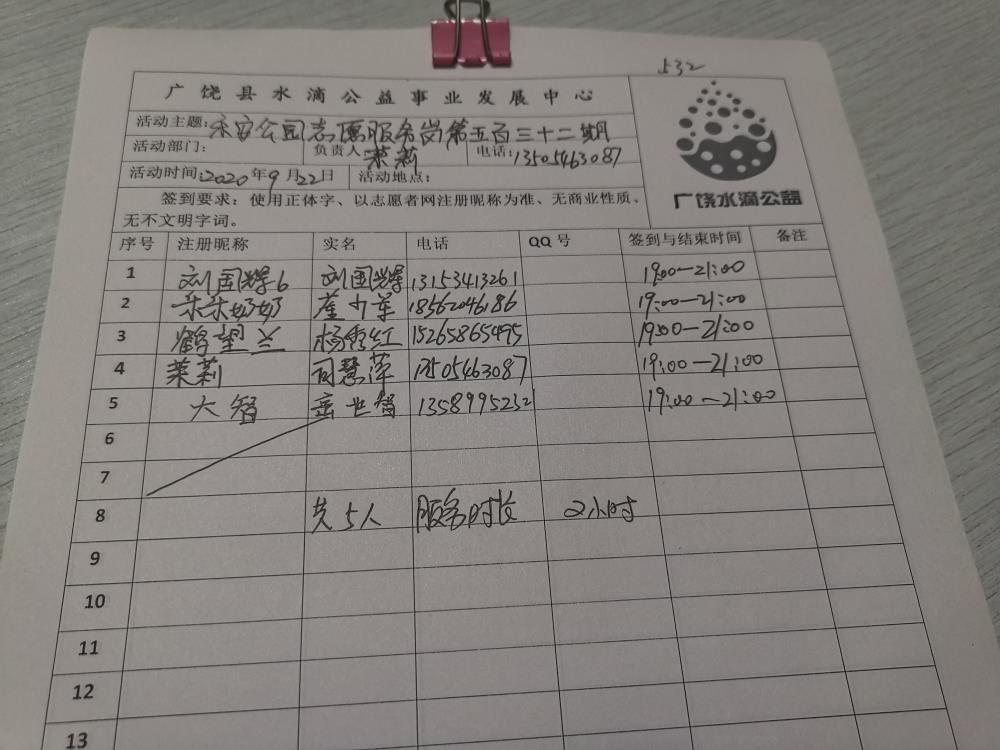 532
广饶县水滴公益事业发展中心
活动主题:乐安公园志愿服务岗第五百三十二期
活动部门: 负责人 茉莉 电话:13505463087
活动时间:2020年9月22日 活动地点:
广饶水滴公益
签到要求:使用正体字、以志愿者网注册昵称为准、无商业性质、
无不文明字词。
序号 注册昵称 实名 电话 QQ号 签到与结束时间 备注
1 刘国辉6 刘国辉 13153413261 19:00—21:00
2 乐乐奶奶 18562046186 19:00—21:00
3 鹤望兰 杨秀红 15265865495 19:00—21:00
4 茉莉 司慧萍 13505463087 19:00—21:00
5 大智 岳世智 13589952321 19:00—21:00
6
7
8 共5人 服务时长 2小时
9
10
11
12
13